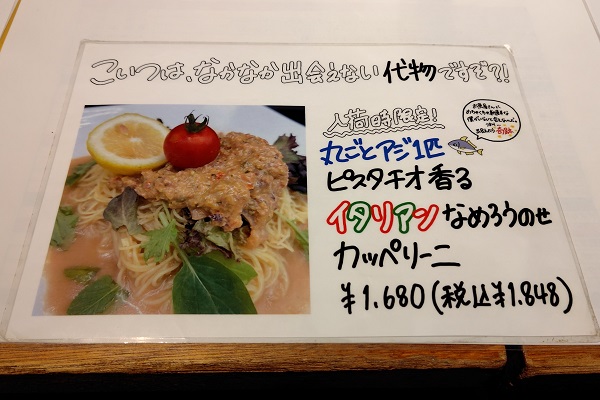 こいつは、なかなか出会えない代物ですぞ?!
入荷時限定!
丸ごとアジ1匹
ピスタチオ香る
イタリアンなめろうのせ
カッペリーニ
¥1.680(税込¥1.848)